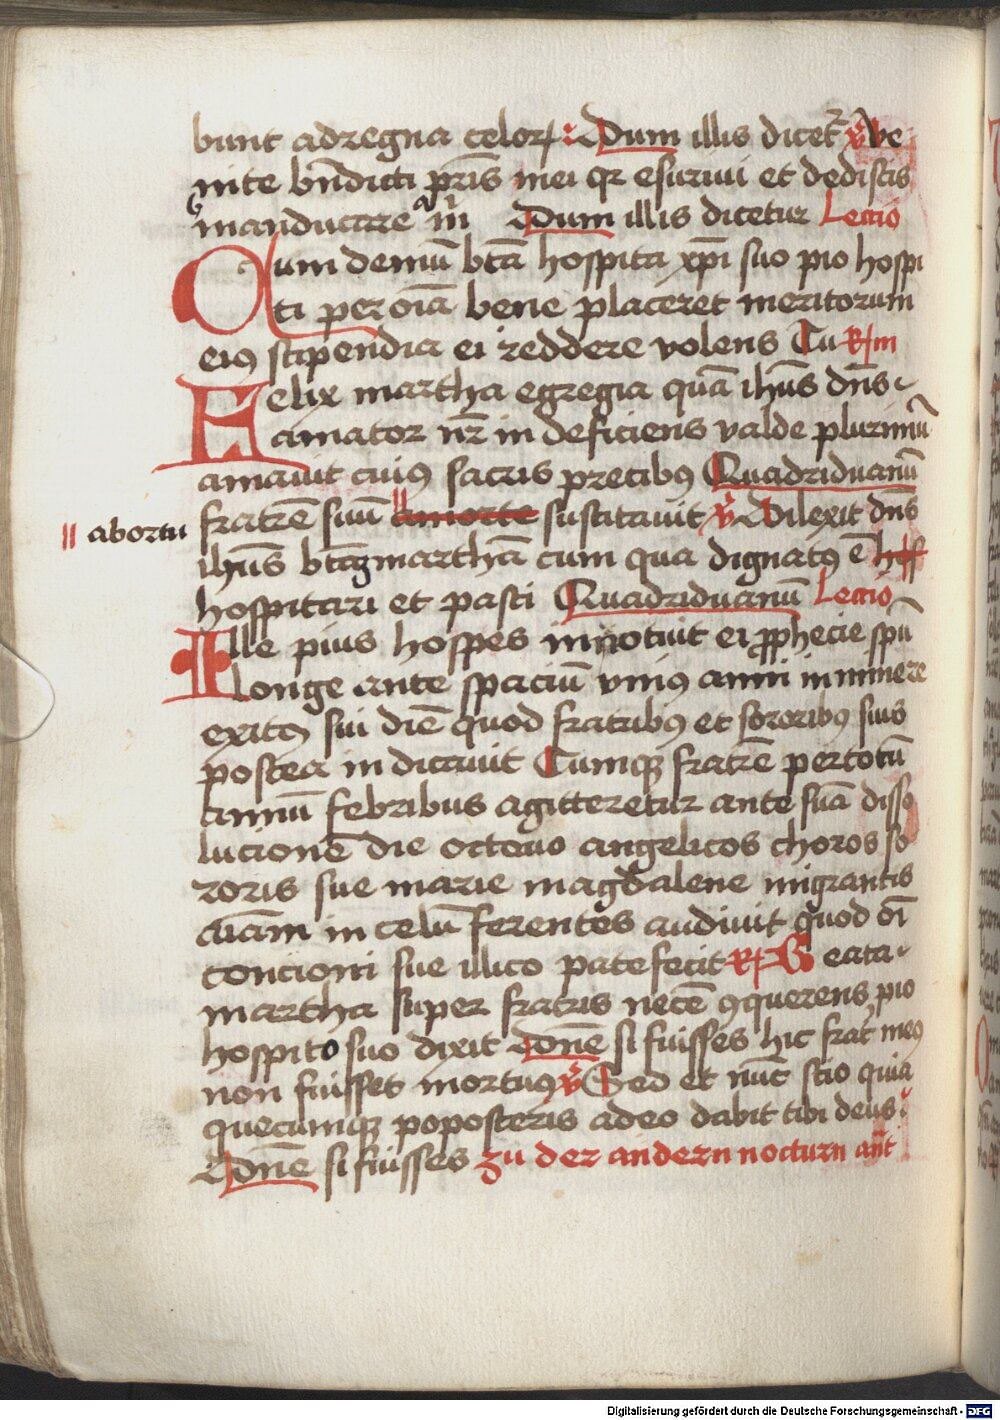 bunt ad regna celoꝝ : Dum illis dicet᷑ ℣ Ve
nite bn̄dicti pr̄is mei qr esurivi et dedistis
manducare m̄ Dum illis dicetur Lectio
Cum demū btā hospita xp̄i suo pio hospi
ti per oīa bene placeret meritorum
eiꝰ stipendia ei reddere volens Tu R̃m
Felix martha egregia quā ihūs dn̄s
amator nr̄ in deficiens valde plurimū
amavit cuiꝰ sacris precibꝰ Quadriduanū
|| abortu
fratrē suū a morte suscitavit ℣ Dilexit dn̄s
ihūs btāz marthā cum qua dignatꝰ ē hosp
hospitari et pasci Quadriduanū Lectio
Ille pius hospes innotuit ei ꝓphecie spū
longe ante spaciū vniꝰ anni inminere
exitꝰ sui diē quod fratribꝰ et sororibꝰ suis
postea indicavit Cumqꝫ fratrē per totū
annū febribus agitteretur ante suā disso
lucionē die octavo angelicos choros so
roris sue marie magdalene migrantis
aīam in celū ferentes audivit quod oī
concioni sue illico patefecit R̃ Beata
martha super fratris necē ꝯquerens pio
hospito suo dixit Dn̄e si fuisses hic frat᷑ meꝰ
non fuisset mortuꝰ ℣ Sed et nūc scio quia
quecumqꝫ poposceris a deo dabit tibi deus :
Dn̄e si fuisses zu der andern nocturn an̄t
Digitalisierung gefördert durch die Deutsche Forschungsgemeinschaft - DFG